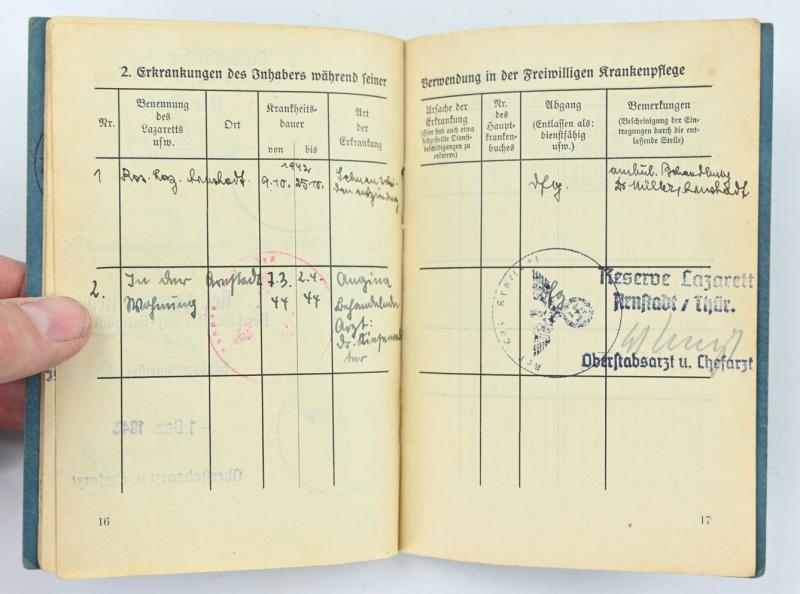 2. Erkrankungen des Inhabers während seiner
Nr.
Benennung
des
Lazaretts
usw.
Ort
Krankheits-
dauer
von bis
Art
der
Erkrankung
1
Res. Laz.
Arnstadt
1942
9.10. 25.10.
Sehnenschei-
denentzündung
2.
In der
Wohnung
Arnstadt
7.3.
44
2.4.
44
Angina
Behandelnder
Arzt:
Dr.
16
Verwendung in der Freiwilligen Krankenpflege
Ursache der
Erkrankung
(Hier sind auch etwa
festgestellte Dienst-
beschädigungen zu
erwähnen)
Nr.
des
Haupt-
kranken-
buches
Abgang
(Entlassen als:
dienstfähig
usw.)
Bemerkungen
(Bescheinigung der Ein-
tragungen durch die ent-
lassende Stelle)
dfg.
ambul. Behandlung
Dr. Müller, Arnstadt
dfg
Reserve Lazarett
Arnstadt / Thür.
Oberstabsarzt u. Chefarzt
17
- 1. Dez. 1943
Oberstabsarzt u. Chefarzt